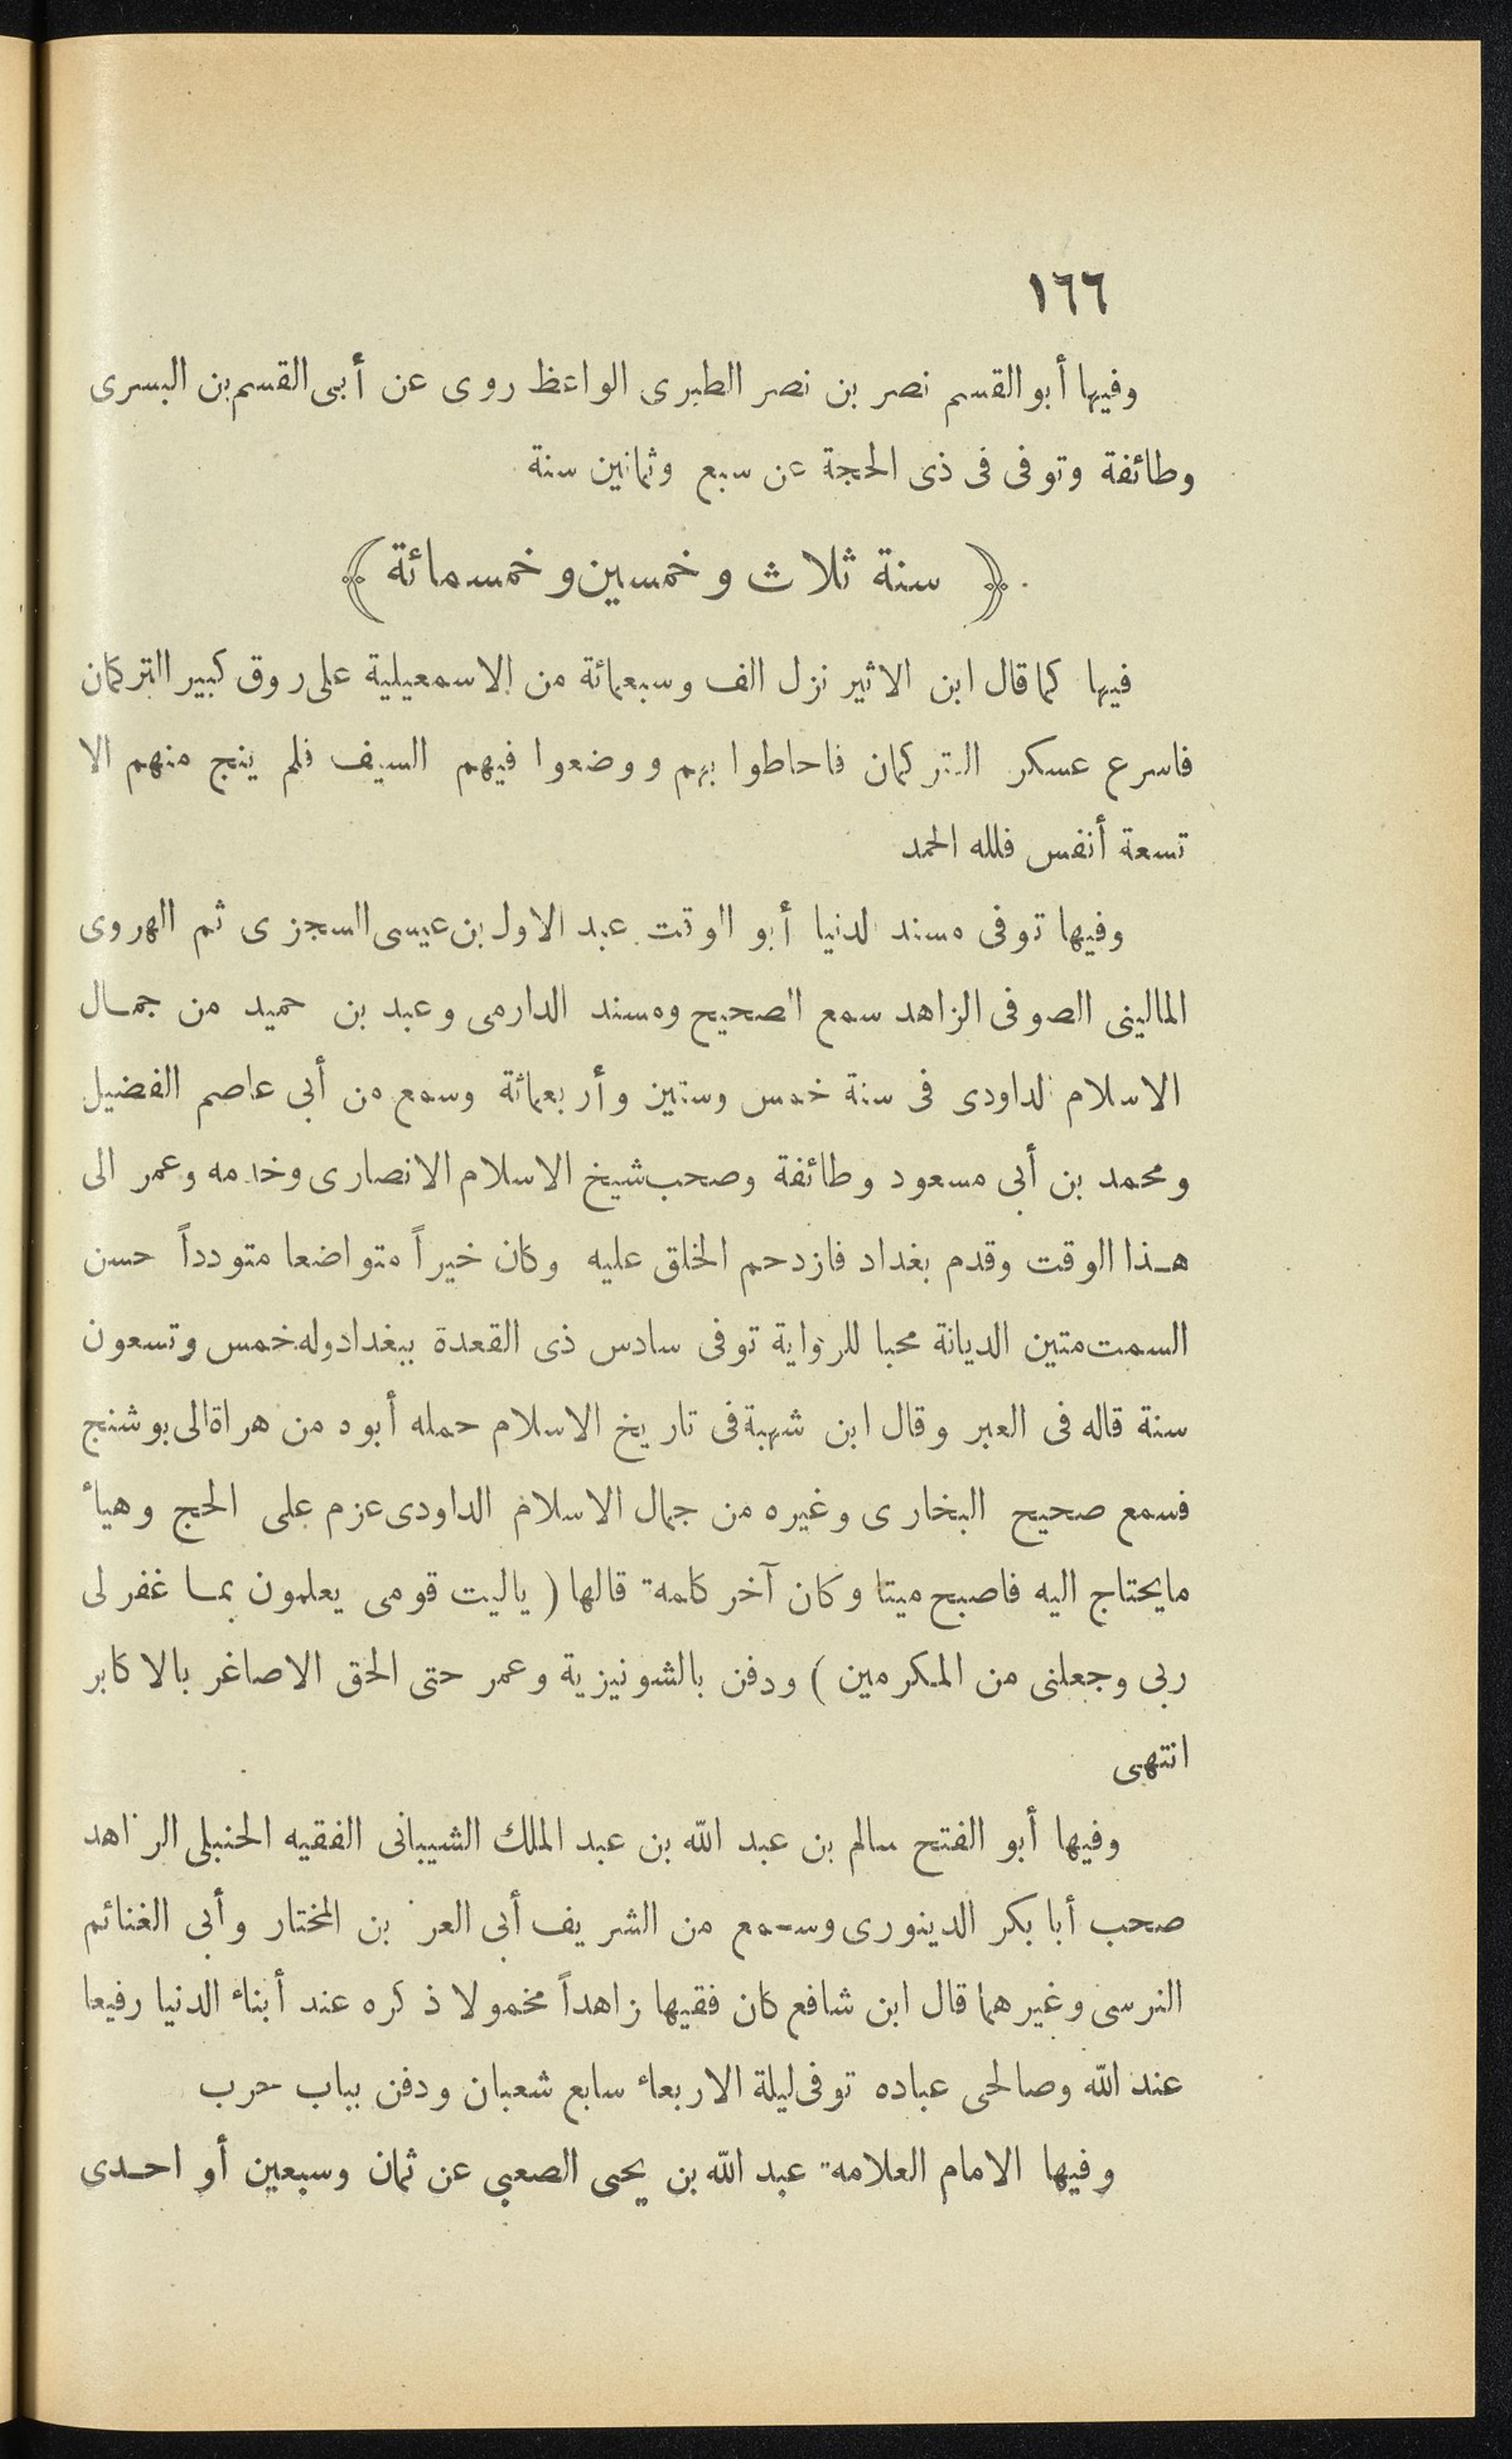 ١٦٦
وفيها أبو القسم نصر بن نصر الطبرى الواعظ روى عن أبى القسم بن البسرى
وطائفة وتوفى فى ذى الحجة عن سبع وثمانين سنة
﴿ سنة ثلاث وخمسين وخمسمائة ﴾
فيها كما قال ابن الاثير نزل الف وسبعمائة من الاسمعيلية على روق كبير التركمان
فاسرع عسكر التركمان فاحاطوا بهم ووضعوا فيهم السيف فلم ينج منهم الا
تسعة أنفس فلله الحمد
وفيها توفى مسند الدنيا أبو الوقت عبد الاول بن عيسى السجزى ثم الهروى
المالينى الصوفى الزاهد سمع الصحيح ومسند الدارمى وعبد بن حميد من جمال
الاسلام الداودى فى سنة خمس وستين وأربعمائة وسمع من أبى عاصم الفضيل
ومحمد بن أبى مسعود وطائفة وصحب شيخ الاسلام الانصارى وخدمه وعمر الى
هذا الوقت وقدم بغداد فازدحم الخلق عليه وكان خيراً متواضعا متودداً حسن
السمت متين الديانة محبا للرواية توفى سادس ذى القعدة ببغداد وله خمس وتسعون
سنة قاله فى العبر وقال ابن شهبة فى تاريخ الاسلام حمله أبوه من هراة الى بوشنج
فسمع صحيح البخارى وغيره من جمال الاسلام الداودى عزم على الحج وهيأ
مايحتاج اليه فاصبح ميتا وكان آخر كلمة قالها ( ياليت قومى يعلمون بما غفر لى
ربى وجعلنى من المكرمين ) ودفن بالشونيزية وعمر حتى الحق الاصاغر بالاكابر
انتهى
وفيها أبو الفتح سالم بن عبد الله بن عبد الملك الشيبانى الفقيه الحنبلى الزاهد
صحب أبا بكر الدينورى وسمع من الشريف أبى العز بن المختار وأبى الغنائم
النرسى وغيرهما قال ابن شافع كان فقيها زاهداً مخمولا ذكره عند أبناء الدنيا رفيعا
عند الله وصالحى عباده توفى ليلة الاربعاء سابع شعبان ودفن بباب حرب
وفيها الامام العلامة عبد الله بن يحيى الصعبى عن ثمان وسبعين أو احدى